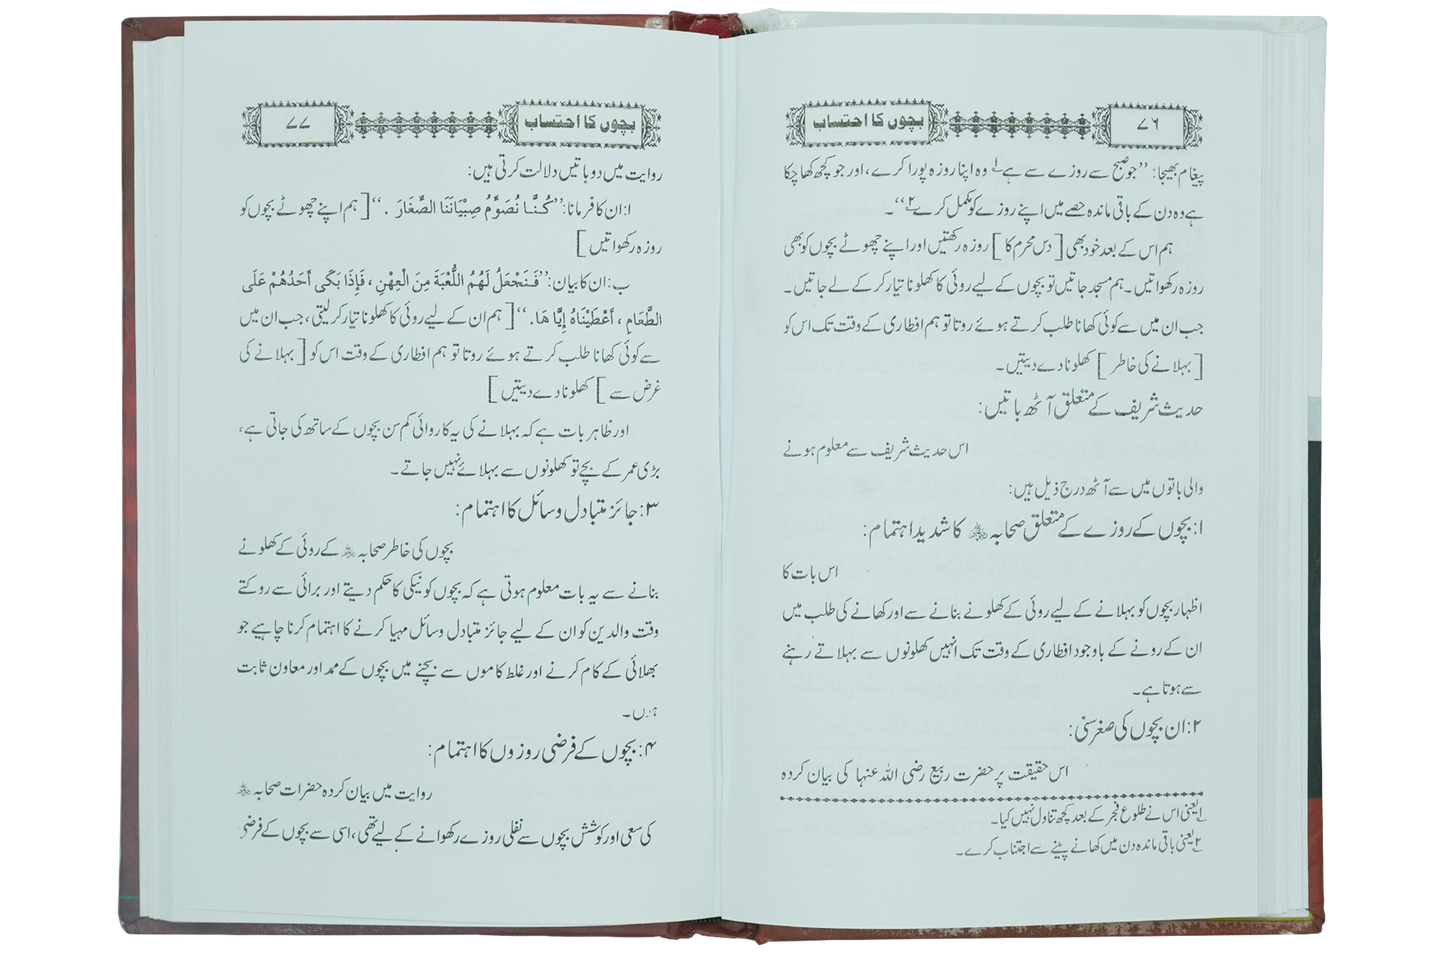 بچوں کا احتساب
۷۶
پیغام بھیجا: ’’جو صبح سے روزے سے ہے۱ وہ اپنا روزہ پورا کرے، اور جو کچھ کھا چکا
ہے وہ دن کے باقی ماندہ حصے میں اپنے روزے کو مکمل کرے۲‘‘۔
ہم اس کے بعد خود بھی [دس محرم کا] روزہ رکھتیں اور اپنے چھوٹے بچوں کو بھی
روزہ رکھواتیں۔ ہم مسجد جاتیں تو بچوں کے لیے روئی کا کھلونا تیار کر کے لے جاتیں۔
جب ان میں سے کوئی کھانا طلب کرتے ہوئے روتا تو ہم افطاری کے وقت تک اس کو
[بہلانے کی خاطر] کھلونا دے دیتیں۔
حدیث شریف کے متعلق آٹھ باتیں:
اس حدیث شریف سے معلوم ہونے
والی باتوں میں سے آٹھ درج ذیل ہیں:
۱: بچوں کے روزے کے متعلق صحابہ رضی اللہ عنہم کا شدید اہتمام:
اس بات کا
اظہار بچوں کو بہلانے کے لیے روئی کے کھلونے بنانے سے اور کھانے کی طلب میں
ان کے رونے کے باوجود افطاری کے وقت تک انہیں کھلونوں سے بہلاتے رہنے
سے ہوتا ہے۔
۲: ان بچوں کی صغر سنی:
اس حقیقت پر حضرت ربیع رضی اللہ عنہا کی بیان کردہ
۱ یعنی اس نے طلوع فجر کے بعد کچھ تناول نہیں کیا۔
۲ یعنی باقی ماندہ دن میں کھانے پینے سے اجتناب کرے۔
بچوں کا احتساب
۷۷
روایت میں دو باتیں دلالت کرتی ہیں:
ا: ان کا فرمانا: ’’كُنَّا نُصَوِّمُ صِبْيَانَنَا الصِّغَارَ .‘‘ [ہم اپنے چھوٹے بچوں کو
روزہ رکھواتیں]
ب: ان کا بیان: ’’فَنَجْعَلُ لَهُمُ اللُّعْبَةَ مِنَ الْعِهْنِ ، فَإِذَا بَكَى أَحَدُهُمْ عَلَى
الطَّعَامِ ، أَعْطَيْنَاهُ إِيَّاهَا .‘‘ [ہم ان کے لیے روئی کا کھلونا تیار کرلیتی، جب ان میں
سے کوئی کھانا طلب کرتے ہوئے روتا تو ہم افطاری کے وقت اس کو [بہلانے کی
غرض سے] کھلونا دے دیتیں]
اور ظاہر بات ہے کہ بہلانے کی یہ کاروائی کم سن بچوں کے ساتھ کی جاتی ہے،
بڑی عمر کے بچے تو کھلونوں سے بہلائے نہیں جاتے۔
۳: جائز متبادل وسائل کا اہتمام:
بچوں کی خاطر صحابہ رضی اللہ عنہم کے روئی کے کھلونے
بنانے سے یہ بات معلوم ہوتی ہے کہ بچوں کو نیکی کا حکم دیتے اور برائی سے روکتے
وقت والدین کو ان کے لیے جائز متبادل وسائل مہیا کرنے کا اہتمام کرنا چاہیے جو
بھلائی کے کام کرنے اور غلط کاموں سے بچنے میں بچوں کے ممد اور معاون ثابت
ہوں۔
۴: بچوں کے فرضی روزوں کا اہتمام:
روایت میں بیان کردہ حضرات صحابہ رضی اللہ عنہم
کی سعی اور کوشش بچوں سے نفلی روزے رکھوانے کے لیے تھی، اسی سے بچوں کے فرضی